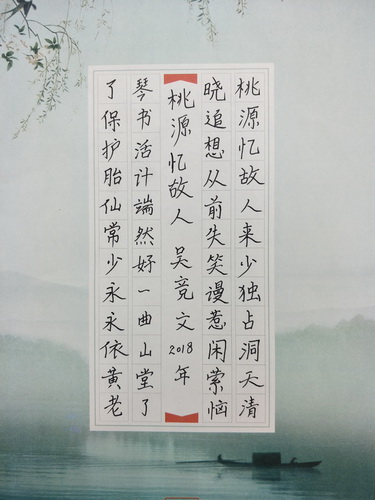 桃源忆故人来少独占洞天清
晓追想从前失笑谩惹闲萦恼
桃源忆故人 吴竞文2018年
琴书活计端然好一曲山堂了
了保护胎仙常少永永依黄老